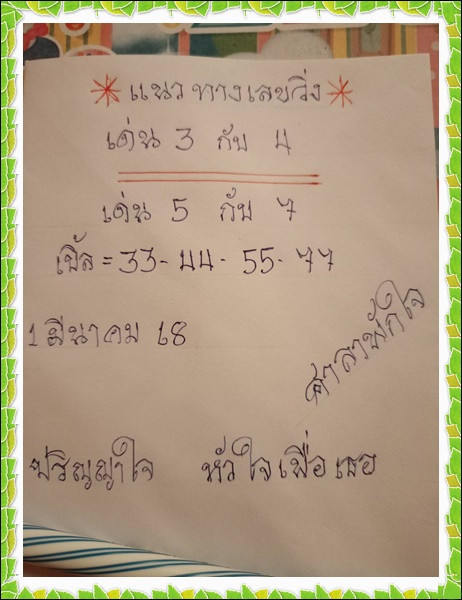 แนวทางเลขวิ่ง
เด่น 3 กับ 4
เด่น 5 กับ 7
เบิ้ล = 33 - 44 - 55 - 77
1 มีนาคม 68
ศาลาพักใจ
ปริญญาใจ หัวใจเพื่อเธอ